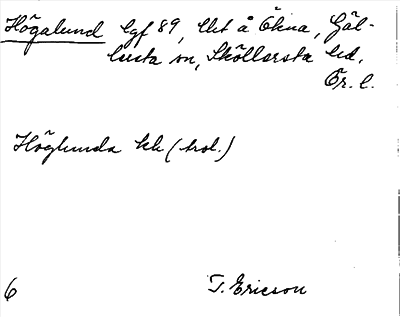 Högalund lgf 89, lht å Ökna, Gäl-
lersta sn, Sköllersta hd,
Ör. l.
Höglunda hk (trol.)
6 T. Ericson